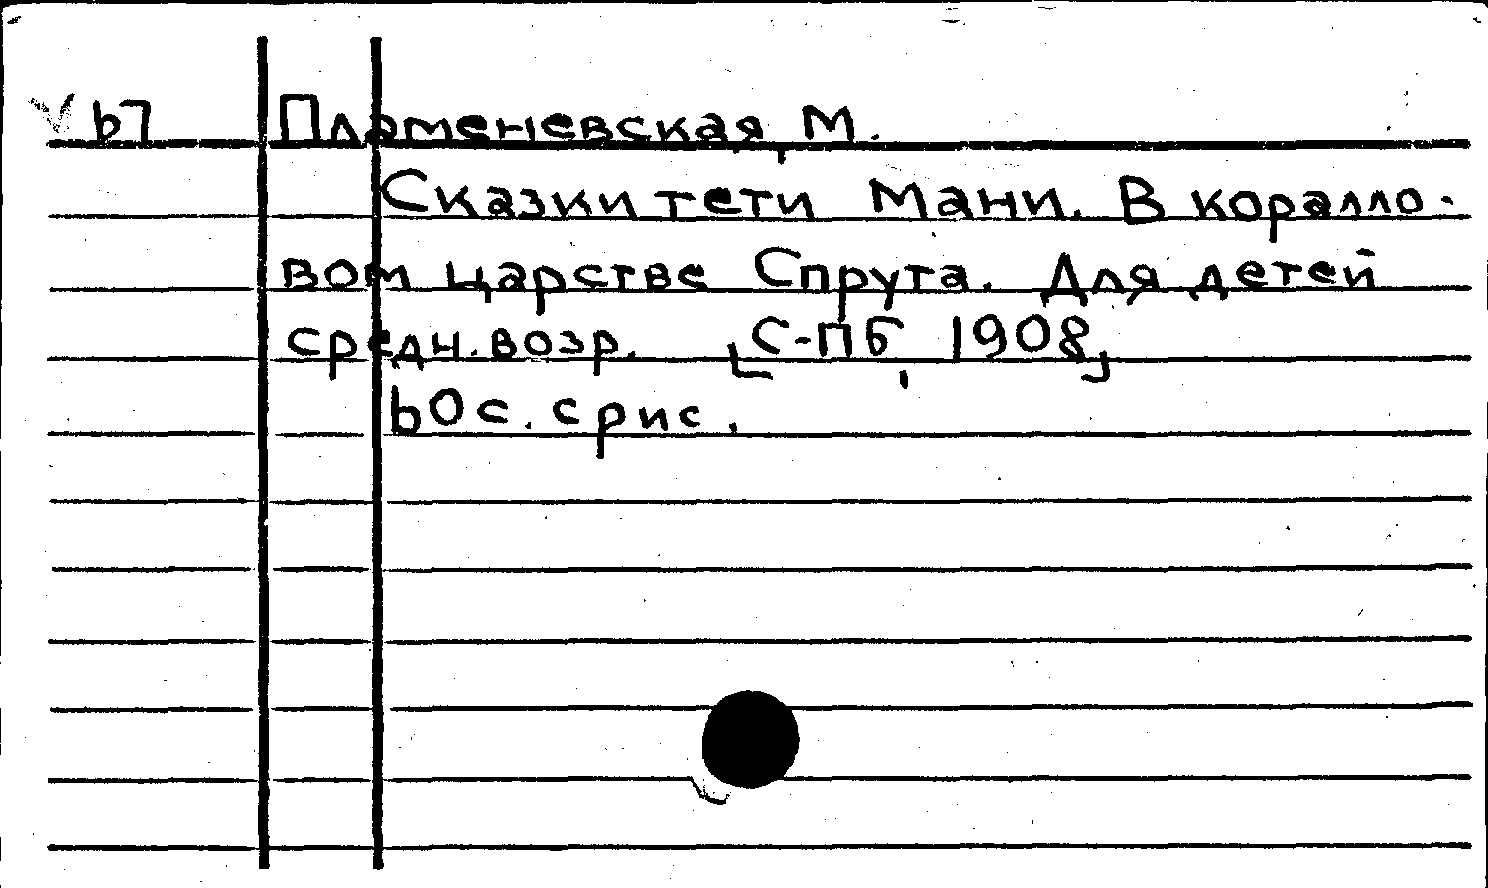 67 Пламеневская, М.
Сказки тети Мани. В коралло-
вом царстве Спрута. Для детей
средн. возр. [С-Пб, 1908]
60 с. с рис.